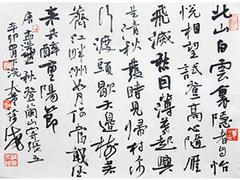 北山白雲裏隱者自怡
悅相望試登高心隨雁
飛滅愁因薄暮起興
是清秋發時見歸村人沙
行渡頭歇天邊樹若
薺江畔洲如月何當載酒
來共醉重陽節
秋登蘭山寄張五
辛卯